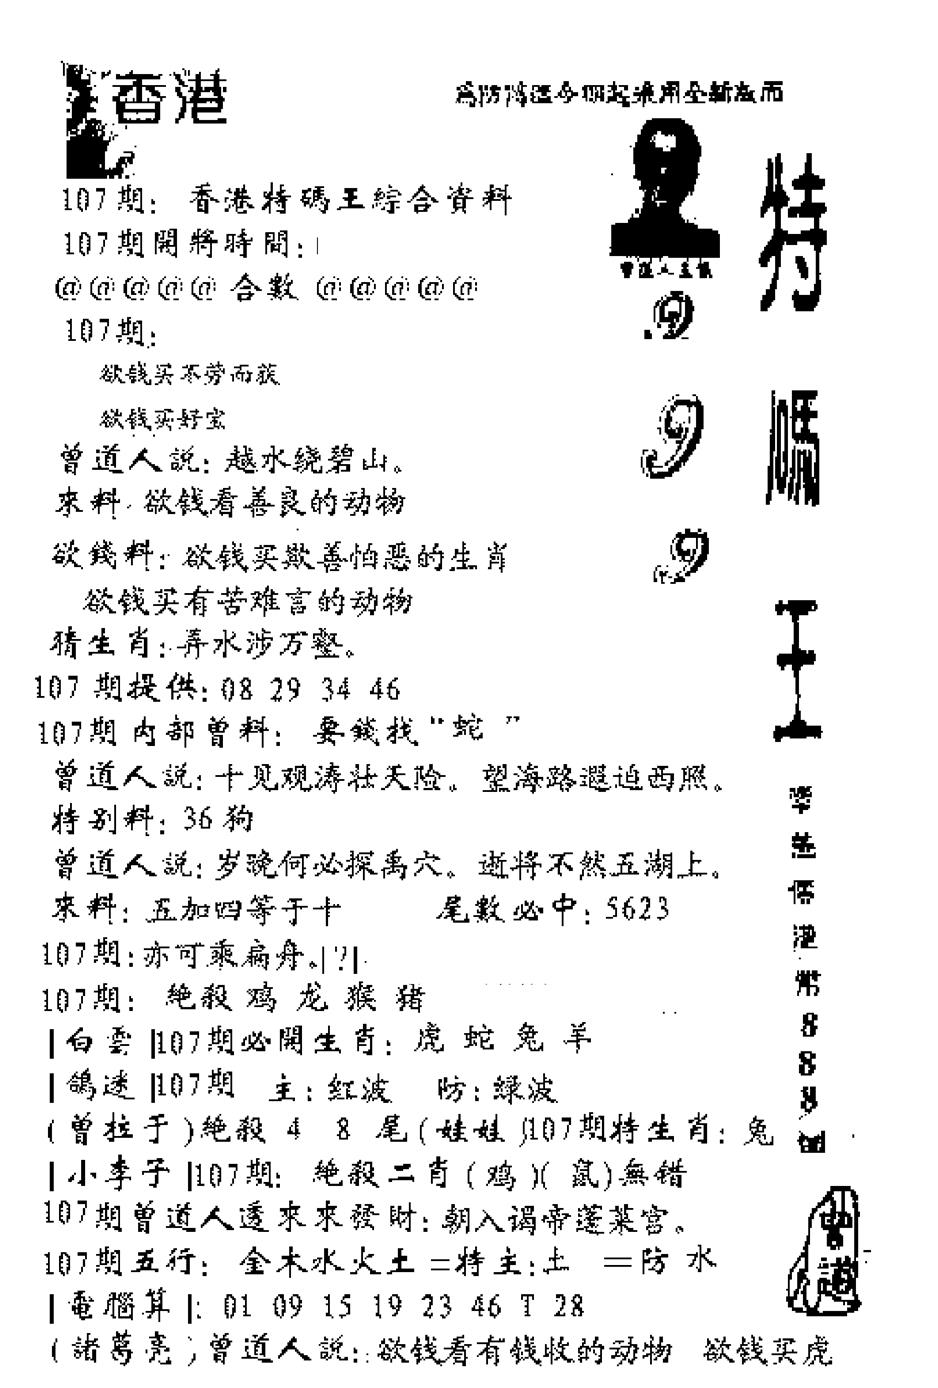 香港
為防偽冒今期起采用全新版面
107期: 香港特碼王綜合資料
107期開將時間:|
@@@@@ 合數 @@@@@
107期:
欲钱买不劳而获
欲钱买好宝
曾道人説: 越水绕碧山。
來料: 欲钱看善良的动物
欲錢料: 欲钱买欺善怕恶的生肖
欲钱买有苦难言的动物
猜生肖: 弄水涉万壑。
107 期提供: 08 29 34 46
107期内部曾料: 要錢找"蛇"
曾道人説: 十见观涛壮天险。望海路遐迫西照。
特别料: 36狗
曾道人説: 岁晚何必探禹穴。逝将不然五湖上。
來料: 五加四等于十 尾數必中: 5623
107期: 亦可乘扁舟。|?|
107期: 絶殺 鸡 龙 猴 猪
|白雲|107期必開生肖: 虎 蛇 兔 羊
|鴿迷|107期 主: 红波 防: 绿波
(曾拉于)絶殺 4 8 尾(娃娃)107期特生肖: 兔
|小李子|107期: 絶殺二肖(鸡)(鼠)無错
107期曾道人透來來發財: 朝入谒帝蓬莱宫。
107期五行: 金木水火土=特主:土 =防 水
|電腦算|: 01 09 15 19 23 46 T 28
(諸葛亮)曾道人説: 欲钱看有钱收的动物 欲钱买虎
曾道人主俵
9
9
9
特
碼
王
港
幣
8
8
8
曾道